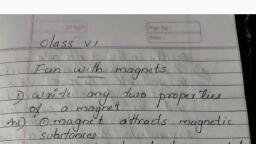 Page No :
Date :
Class VI
Fun with magnets
1) write any two properties
of a magnet
Ans) ① magnet attracts magnetic
substances